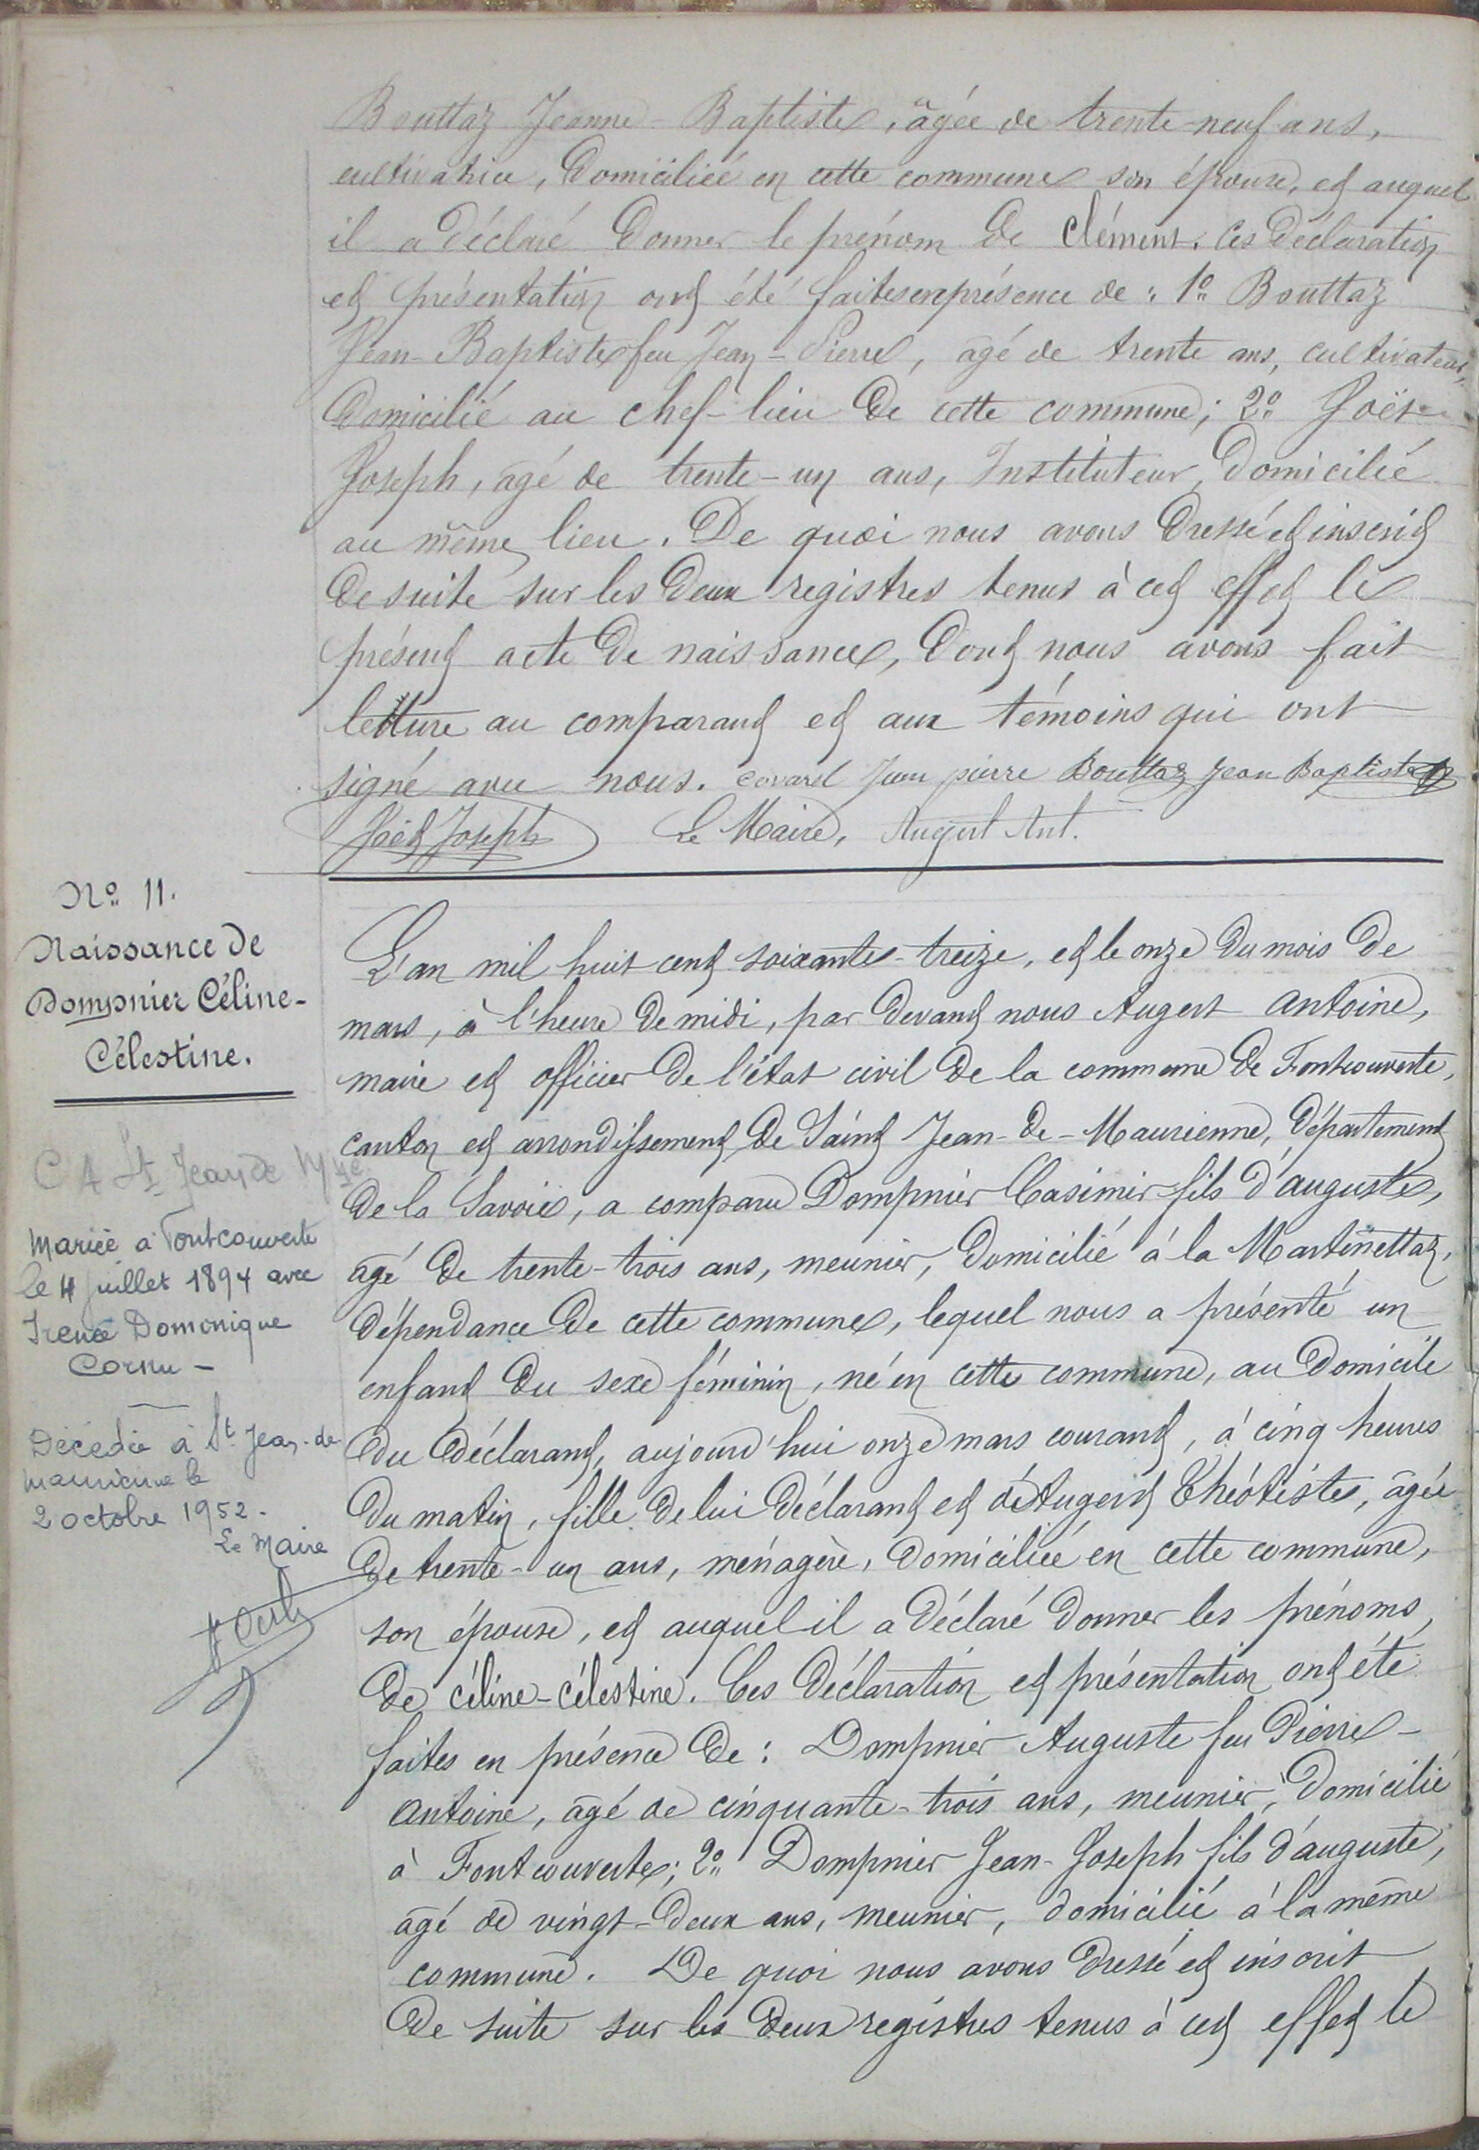 Bouttaz Jeanne-Baptiste, âgée de trente-neuf ans,
cultivatrice, domiciliée en cette commune son épouse, et auquel
il a déclaré donner le prénom de Clément. Ces déclaration
et présentation ont été faites en présence de : 1o Bouttaz
Jean-Baptiste feu Jean-Pierre, âgé de trente ans, cultivateur,
domicilié au chef-lieu de cette commune; 2o Joët
Joseph, âgé de trente-un ans, Instituteur, domicilié
au même lieu. De quoi nous avons dressé et inscrit
de suite sur les deux registres tenus à cet effet le
présent acte de naissance, dont nous avons fait
lecture au comparant et aux témoins qui ont
signé avec nous. Covarel Jean pierre Bouttaz Jean Baptiste
Joët Joseph Le Maire, Augert Ant.
No 11.
Naissance de
Dompnier Céline-
Célestine.
C A St Jean de Mne
Mariée à Fontcouverte
le 4 juillet 1894 avec
Irenée Domonique
Cornu -
Décédée à St Jean-de
Maurienne le
2 octobre 1952.
Le Maire
L'an mil huit cent soixante-treize, et le onze du mois de
mars, à l'heure de midi, par devant nous Augert Antoine,
maire et officier de l'état civil de la commune de Fontcouverte,
canton et arrondissement de Saint Jean-de-Maurienne, département
de la Savoie, a comparu Dompnier Casimir fils d'auguste,
âgé de trente-trois ans, meunier, domicilié à la Martinettaz,
dépendance de cette commune, lequel nous a présenté un
enfant du sexe féminin, né en cette commune, au domicile
du déclarant, aujourd'hui onze mars courant, à cinq heures
du matin, fille de lui déclarant et de Augert Théotiste, âgée
de trente-un ans, ménagère, domiciliée en cette commune,
son épouse, et auquel il a déclaré donner les prénoms
de Céline-Célestine. Ces déclaration et présentation ont été
faites en présence de : Dompnier Auguste feu Pierre-
Antoine, âgé de cinquante-trois ans, meunier, domicilié
à Fontcouverte; 2o Dompnier Jean-Joseph fils d'auguste,
âgé de vingt-deux ans, meunier, domicilié à la même
commune. De quoi nous avons dressé et inscrit
de suite sur les deux registres tenus à cet effet le